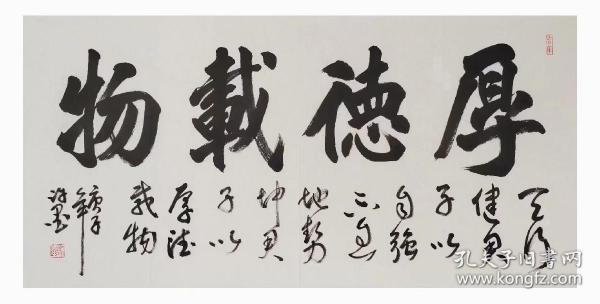 厚德載物
天行
健君
子以
自強
不息
地勢
坤君
子以
厚德
載物
庚子年
孔夫子旧书网
www.kongfz.com